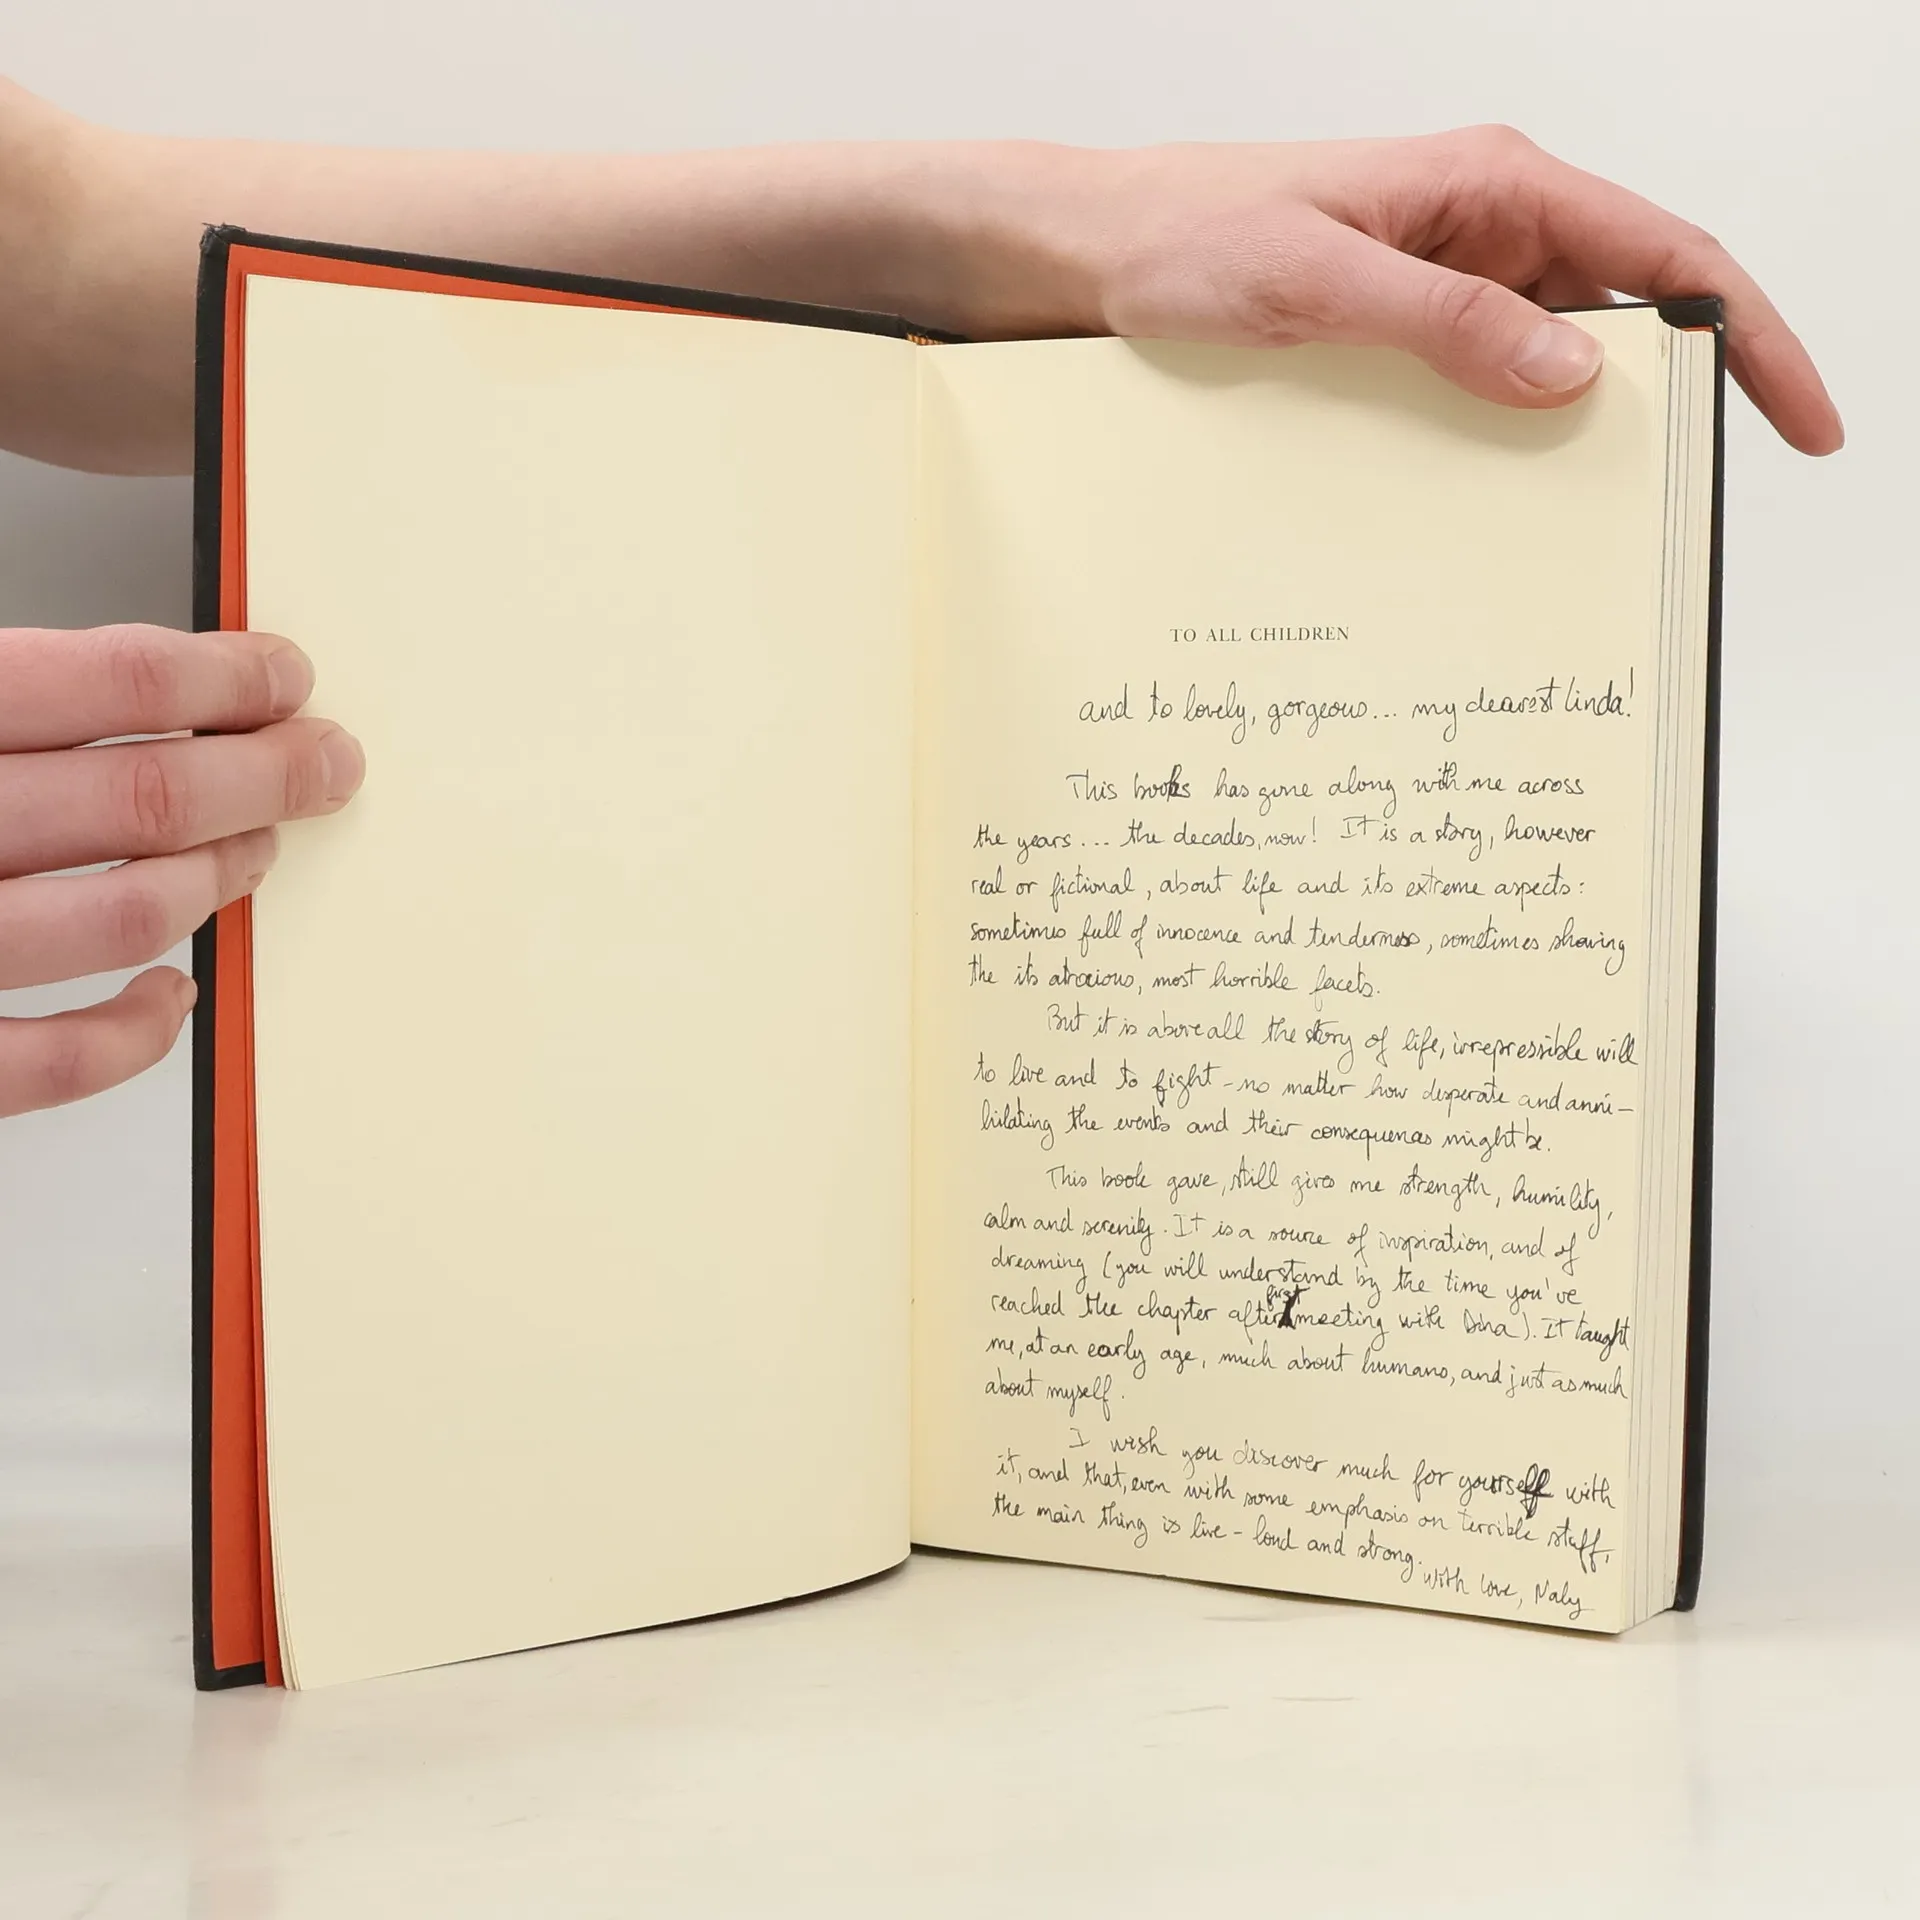 TO ALL CHILDREN
and to lovely, gorgeous... my dearest Linda!
This books has gone along with me across
the years... the decades, now! It is a story, however
real or fictional, about life and its extreme aspects:
sometimes full of innocence and tenderness, sometimes showing
the its atrocious, most horrible facets.
But it is above all the story of life, irrepressible will
to live and to fight - no matter how desperate and anni-
hilating the events and their consequences might be.
This book gave, still gives me strength, humility,
calm and serenity. It is a source of inspiration, and of
dreaming (you will understand by the time you've
reached the chapter after first meeting with Dina). It taught
me, at an early age, much about humans, and just as much
about myself.
I wish you discover much for yourself with
it, and that, even with some emphasis on terrible stuff,
the main thing is live - loud and strong.
With love, Maly